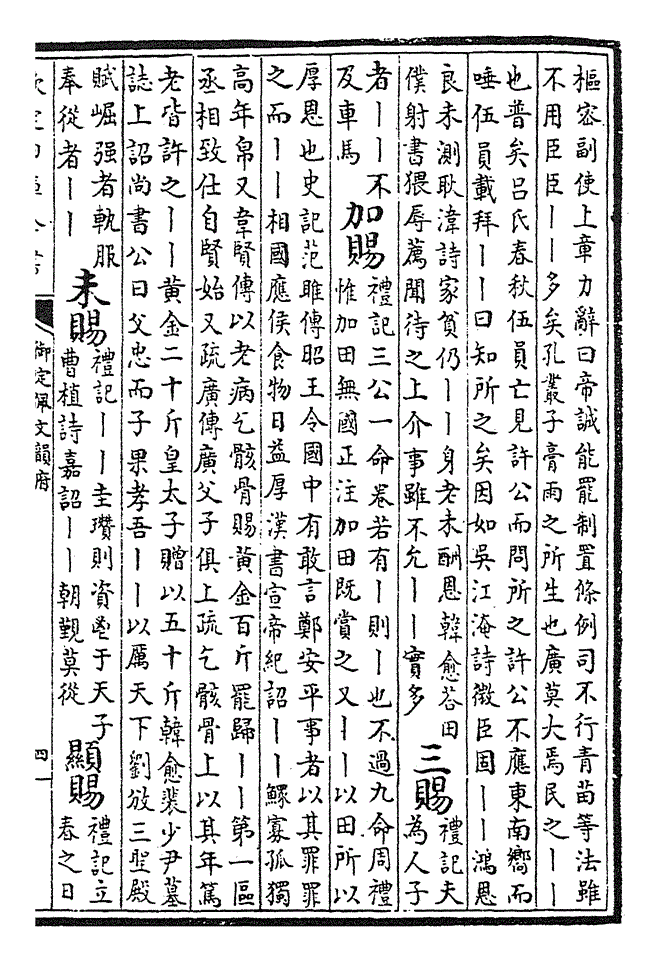 樞密副使上章力辭曰帝誠能罷制置條例司不行青苗等法雖
不用臣臣丨丨多矣孔叢子膏雨之所生也廣莫大焉民之丨丨
也普矣呂氏春秋伍員亡見許公而問所之許公不應東南嚮而
唾伍員載拜丨丨曰知所之矣因如吳江淹詩微臣固丨丨鴻恩
良未測耿湋詩家貧仍丨丨身老未酬恩韓愈荅田
僕射書猥辱薦聞待之上介事雖不允丨丨實多
三賜
禮記夫
為人子
者丨丨不
及車馬
加賜
禮記三公一命卷若有丨則丨也不過九命周禮
惟加田無國正注加田既賞之又丨丨以田所以
厚恩也史記范雎傳昭王令國中有敢言鄭安平事者以其罪罪
之而丨丨相國應侯食物日益厚漢書宣帝紀詔丨丨鰥寡孤獨
高年帛又韋賢傳以老病乞骸骨賜黃金百斤罷歸丨丨第一區
丞相致仕自賢始又疏廣傳廣父子俱上疏乞骸骨上以其年篤
老皆許之丨丨黃金二十斤皇太子贈以五十斤韓愈裴少尹墓
誌上詔尚書公曰父忠而子果孝吾丨丨以厲天下劉攽三聖殿
賦崛强者軌服
奉從者丨丨
未賜
禮記丨丨圭瓚則資鬯于天子
曹植詩嘉詔丨丨朝覲莫從
顯賜
禮記立
春之日
欽定四庫全書
御定佩文韻府
四一